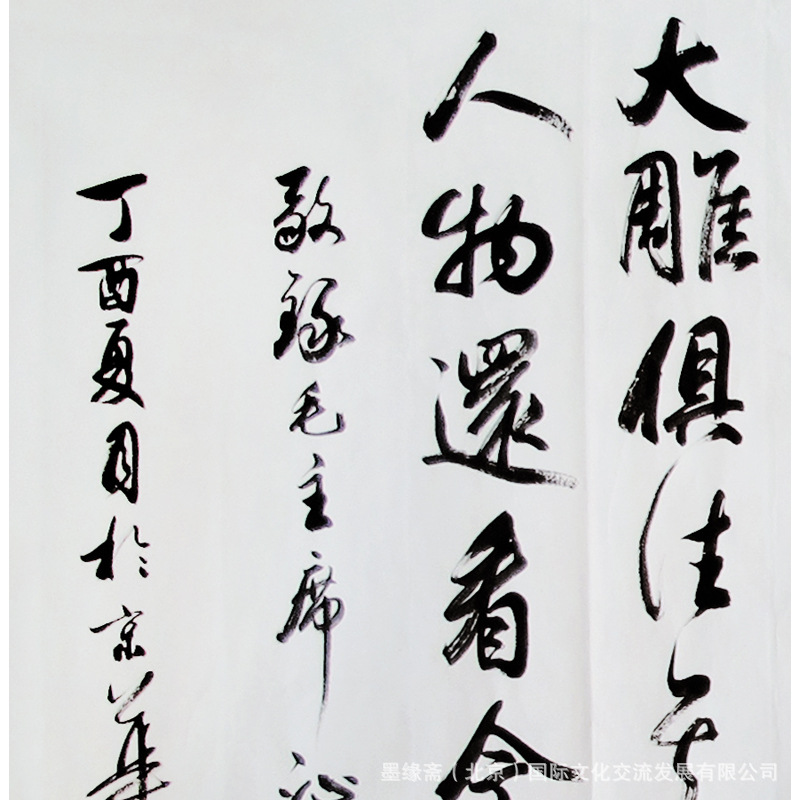 大雕俱往矣
人物還看今
敬録毛主席沁
丁酉夏月於京華
墨缘斋（北京）国际文化交流发展有限公司